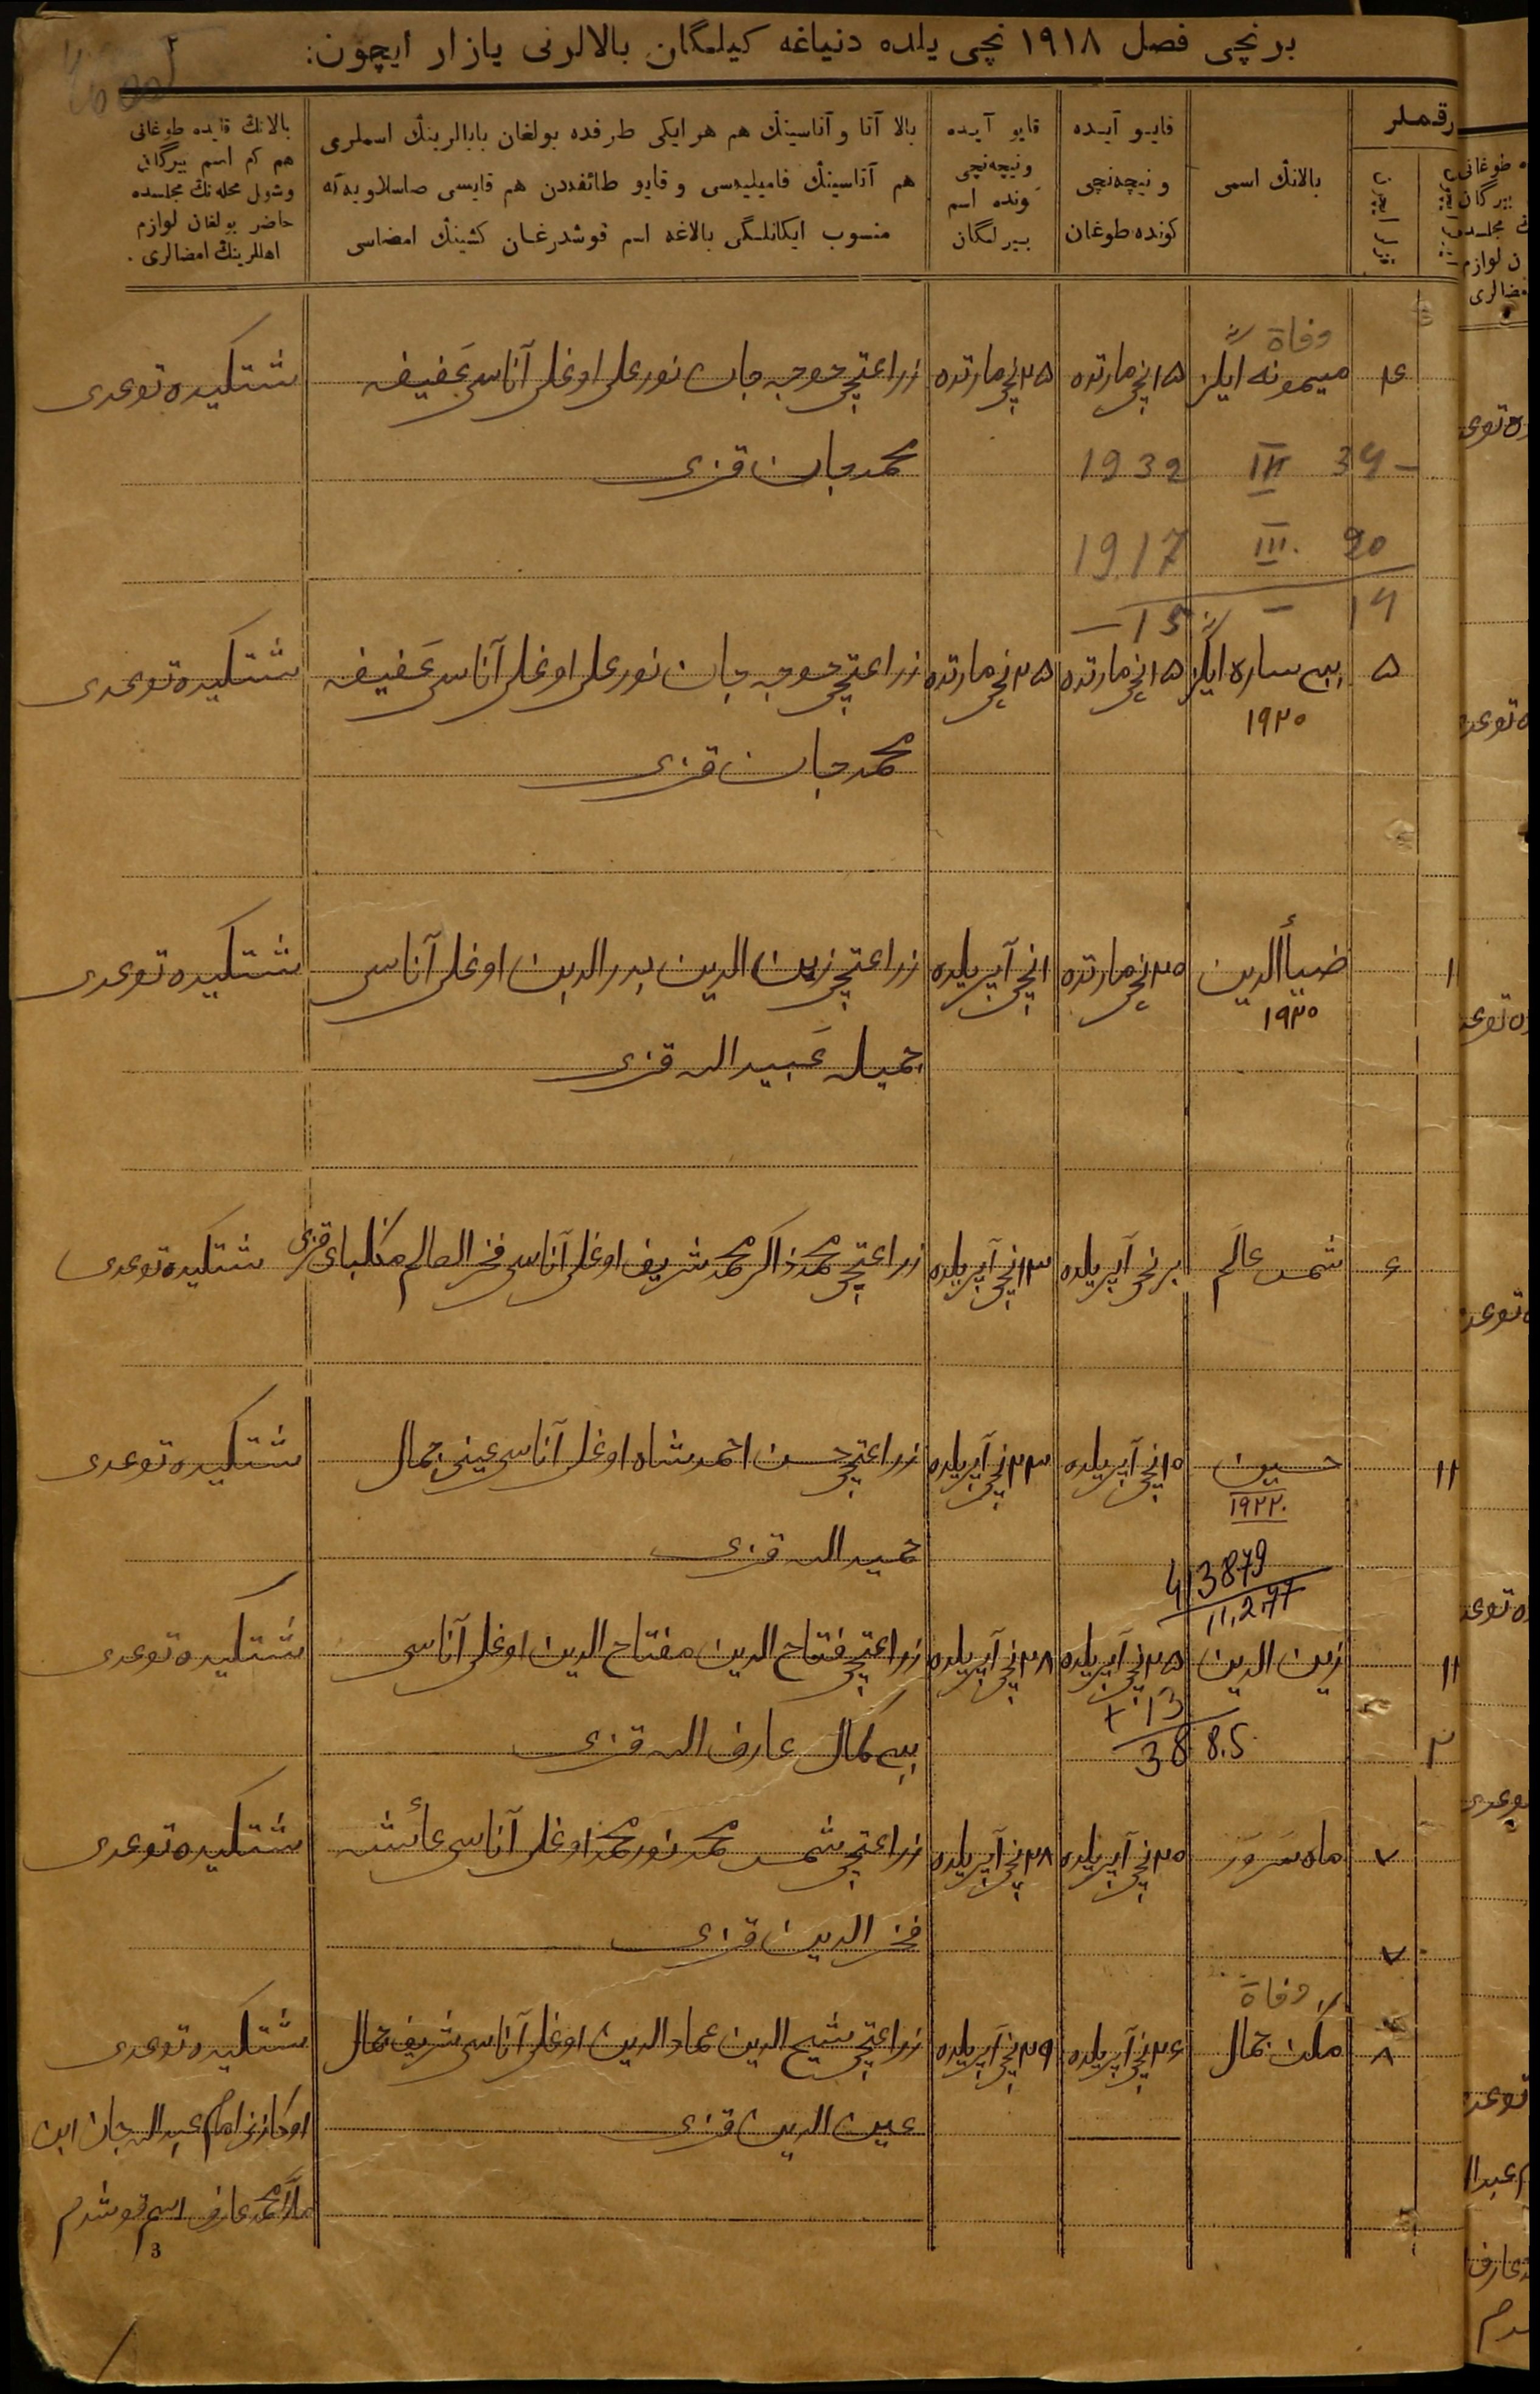 برنچی فصل ١٩١٨ نچی یلده دنیاغه کیلمگان بالالرنی یازار ایچون:
رقملر
بالانڭ اسمی
قایو آیده
و نیچه‌نچی
کونده طوغان
قایو آیده
و نیچه‌نچی
کونده اسم
بیرلگان
بالا آتا و آناسینڭ هم هر ایکی طرفده بولغان بابالرینڭ اسملری
هم آتاسینڭ فامیلیه‌سی و قایو طائفه‌دن هم قایسی صاسلاویه‌گه
منسوب ایکانلگی بالاغه اسم قوشدرغان کشینڭ امضاسی
بالانڭ قایده طوغانی
هم کم اسم بیرگانی
وشول محله‌نڭ مجلسده
حاضر بولغان لوازم
اهللرینڭ امضالری .
وفاة
٤ میمونه ١٥نچی مارتده ٢٥نچی مارتده زراعتچی خوجه جان نورعلی اوغلی آناسی عفیفه شتکیده توعدی
محمدجان قزی
1932 III 34 -
1917 III. 20
- 15 - 14
٥ بیبی ساره ١٥نچی مارتده ٢٥نچی مارتده زراعتچی خوجه جان نورعلی اوغلی آناسی عفیفه شتکیده توعدی
١٩٢٠
محمدجان قزی
١ ضیاٴالدین ٢٠نچی مارتده ١نچی آپریلده زراعتچی زین الدین بدرالدین اوغلی آناسی شتکیده توعدی
١٩٢٠
جمیله عبیدالله قزی
٦ شمس عالم برنچی آپریلده ١٣نچی آپریلده زراعتچی محمدذاکر محمدشریف اوغلی آناسی فخرالعالم منکلبای قزی شتکیده توعدی
١١ حسین ١٠نچی آپریلده ٢٣نچی آپریلده زراعتچی حسن احمدشاه اوغلی آناسی عینی جمال شتکیده توعدی
١٩٢٢
حمیدالله قزی
413879
11,2,77
١١ زین الدین ٢٥نچی آپریلده ٢٨نچی آپریلده زراعتچی فتاح الدین مفتاح الدین اوغلی آناسی شتکیده توعدی
+ 13
38 8.5
٢ بیبی کمال عارف الله قزی
٧ ماه سرور ٢٠نچی آپریلده ٢٨نچی آپریلده زراعتچی شمس محمد نورمحمد اوغلی آناسی عائشه شتکیده توعدی
٧ فخرالدین قزی
وفاة
٨ ملک جمال ٢٦نچی آپریلده ٢٩نچی آپریلده زراعتچی شیخ الدین عمادالدین اوغلی آناسی شریف جمال شتکیده توعدی
عین الدین قزی امام عبدالله جان ابن
ملا محمد عارف اسم قوشدم
3